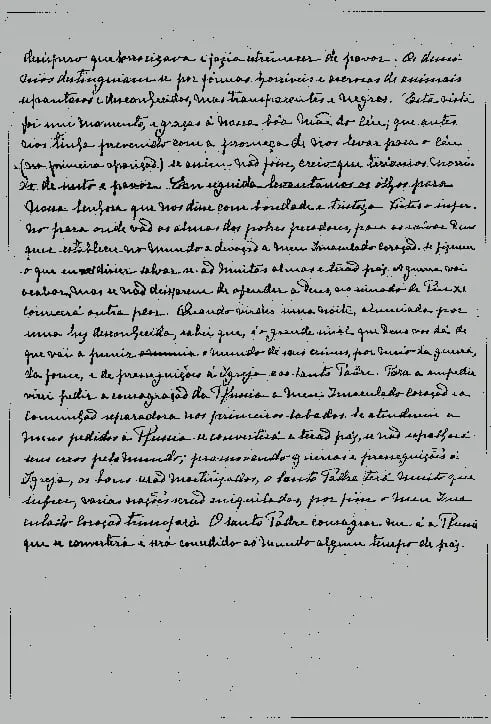 desispero que horrorizava e fazia estremecer de pavor. Os demo
nios destinguiam-se por formas horriveis e ascrosas de animais
espantosos e desconhecidos, mas transparentes e negros. Esta vista
foi um momento, e graças à nossa bôa Mãe do Céu; que antes
nos tinha prevenido com a promeça de nos levar para o Céu
(na primeira aparição) se assim não fosse, creio que teriamos morri
do de susto e pavor. Em seguida, levantámos os olhos para
Nossa Senhora que nos disse com bondade e tristeza: Vistes o infer
no para onde vão as almas dos pobres pecadores, para as salvar Deus
quer establecer no mundo a devoção a meu Imaculado Coração. Se fizerem
o que eu disser salvar-se-ão muitas almas e terão paz. A guerra vai
acabar, mas se não deixarem de ofender a Deus, no reinado de Pio XI
começará outra peor. Quando virdes uma noite, alumiada por
uma luz desconhecida, sabei que é o grande sinal que Deus vos dá de
que vai a punir o mundo de seus crimes, por meio da guerra,
da fome, e de perseguições à Igreja e ao Santo Padre. Para a empedir
virei pedir a consagração da Russia a meu Imaculado Coração e a
Comunhão reparadora nos primeiros sabados. Se atenderem a
meus pedidos a Russia se converterá e terão paz, se não espalhará
seus erros pelo mundo, promovendo guerras e perseguições á
Igreja, os bons serão martirizados, o Santo Padre terá muito que
sufrer, varias nações serão aniquiladas, por fim o meu Ima
culado Coração triunfará. O Santo Padre consagrar-me-á a Russia
que se converterá e será consedido ao mundo algum tempo de paz.